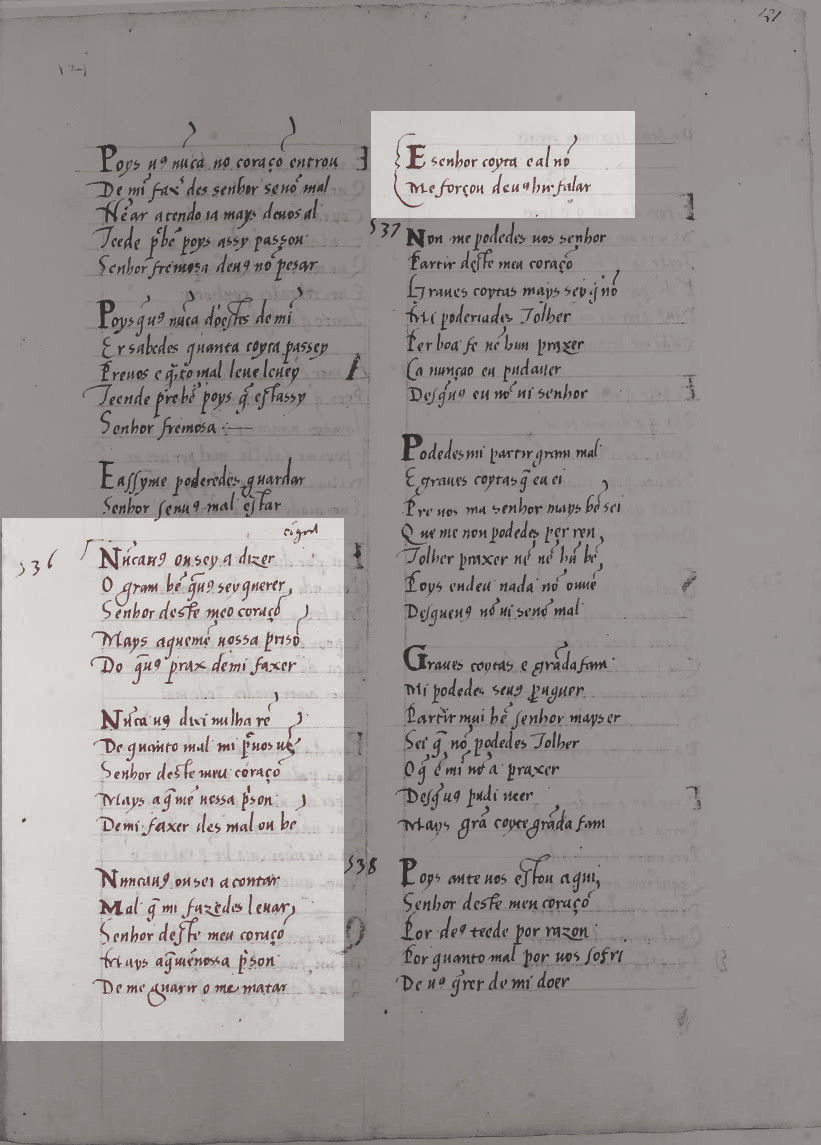 131
Poys uꝯ nũca no coraçõ entrou
De mĩ fax̃ des senhor se nõ mal
Nẽ ar atendo ia mays de uos al
Teede p̃ bẽ poys assy passou
Senhor fremosa de uꝯ nõ pesar
Poys q̃ uꝯ nũca doestes de mĩ
Er sabedes quanta coyta passey
Pre uos e q̃ to mal leue leuey
Teende pre bẽ poys q̃ estassy
Senhor fremosa
E assy me poderedes guardar
Senhor se nuꝯ mal estar
536
Nũca uꝯ ousey a dizer
O gram bẽ q̃ uꝯ sey querer
Senhor deste meo coraçõ
Mays aquemẽ uossa prisõ
Do q̃ uꝯ prax de mi faxer
Nũca uꝯ dixi nulha rẽ
De quanto mal mi p̃ uos uẽ
Senhor deste meu coraçõ
Mays aq̃ mẽ uossa p̃son
De mi faxer des mal ou be
Nuncauꝯ ousei a contar
Mal q̃ mi fazedes leuar
Senhor deste meu coraçõ
Mays aq̃ mẽ uossa p̃son
De me guarir o me matar
E senhor coyta e al nõ
Me forçou de uꝯ hir falar
537
Non me podedes uos senhor
Partir deste meu coraçõ
Graues coytas mays sey q̃ nõ
Mi poderiades Tolher
Per boa fe nẽ hun praxer
Ca nunca o eu pud auer
Des q̃ uꝯ eu nõ ui senhor
Podedes mi partir gram mal
E graues coytas q̃ eu ei
Pre uos ma senhor mays bẽ sei
Que me non podedes per ren
Tolher praxer nẽ nẽ hũ bẽ
Poys endeu nada nõ ouuẽ
Des que uꝯ nõ ui senõ mal
Graues coytas e grãd afam
Mi podedes se uꝯ p̃uguer
Partir mui bẽ senhor mays er
Sei q̃ nõ podedes Tolher
O q̃ ẽ mĩ nõ a praxer
Des q̃ uꝯ pudi ueer
Mays grã coyte grãd a fam
538
Poys ante uos estou aqui
Senhor deste meu coraçõ
Por deꝯ teede por razon
Por quanto mal por uos sofri
De uꝯ q̃rer de mĩ doer